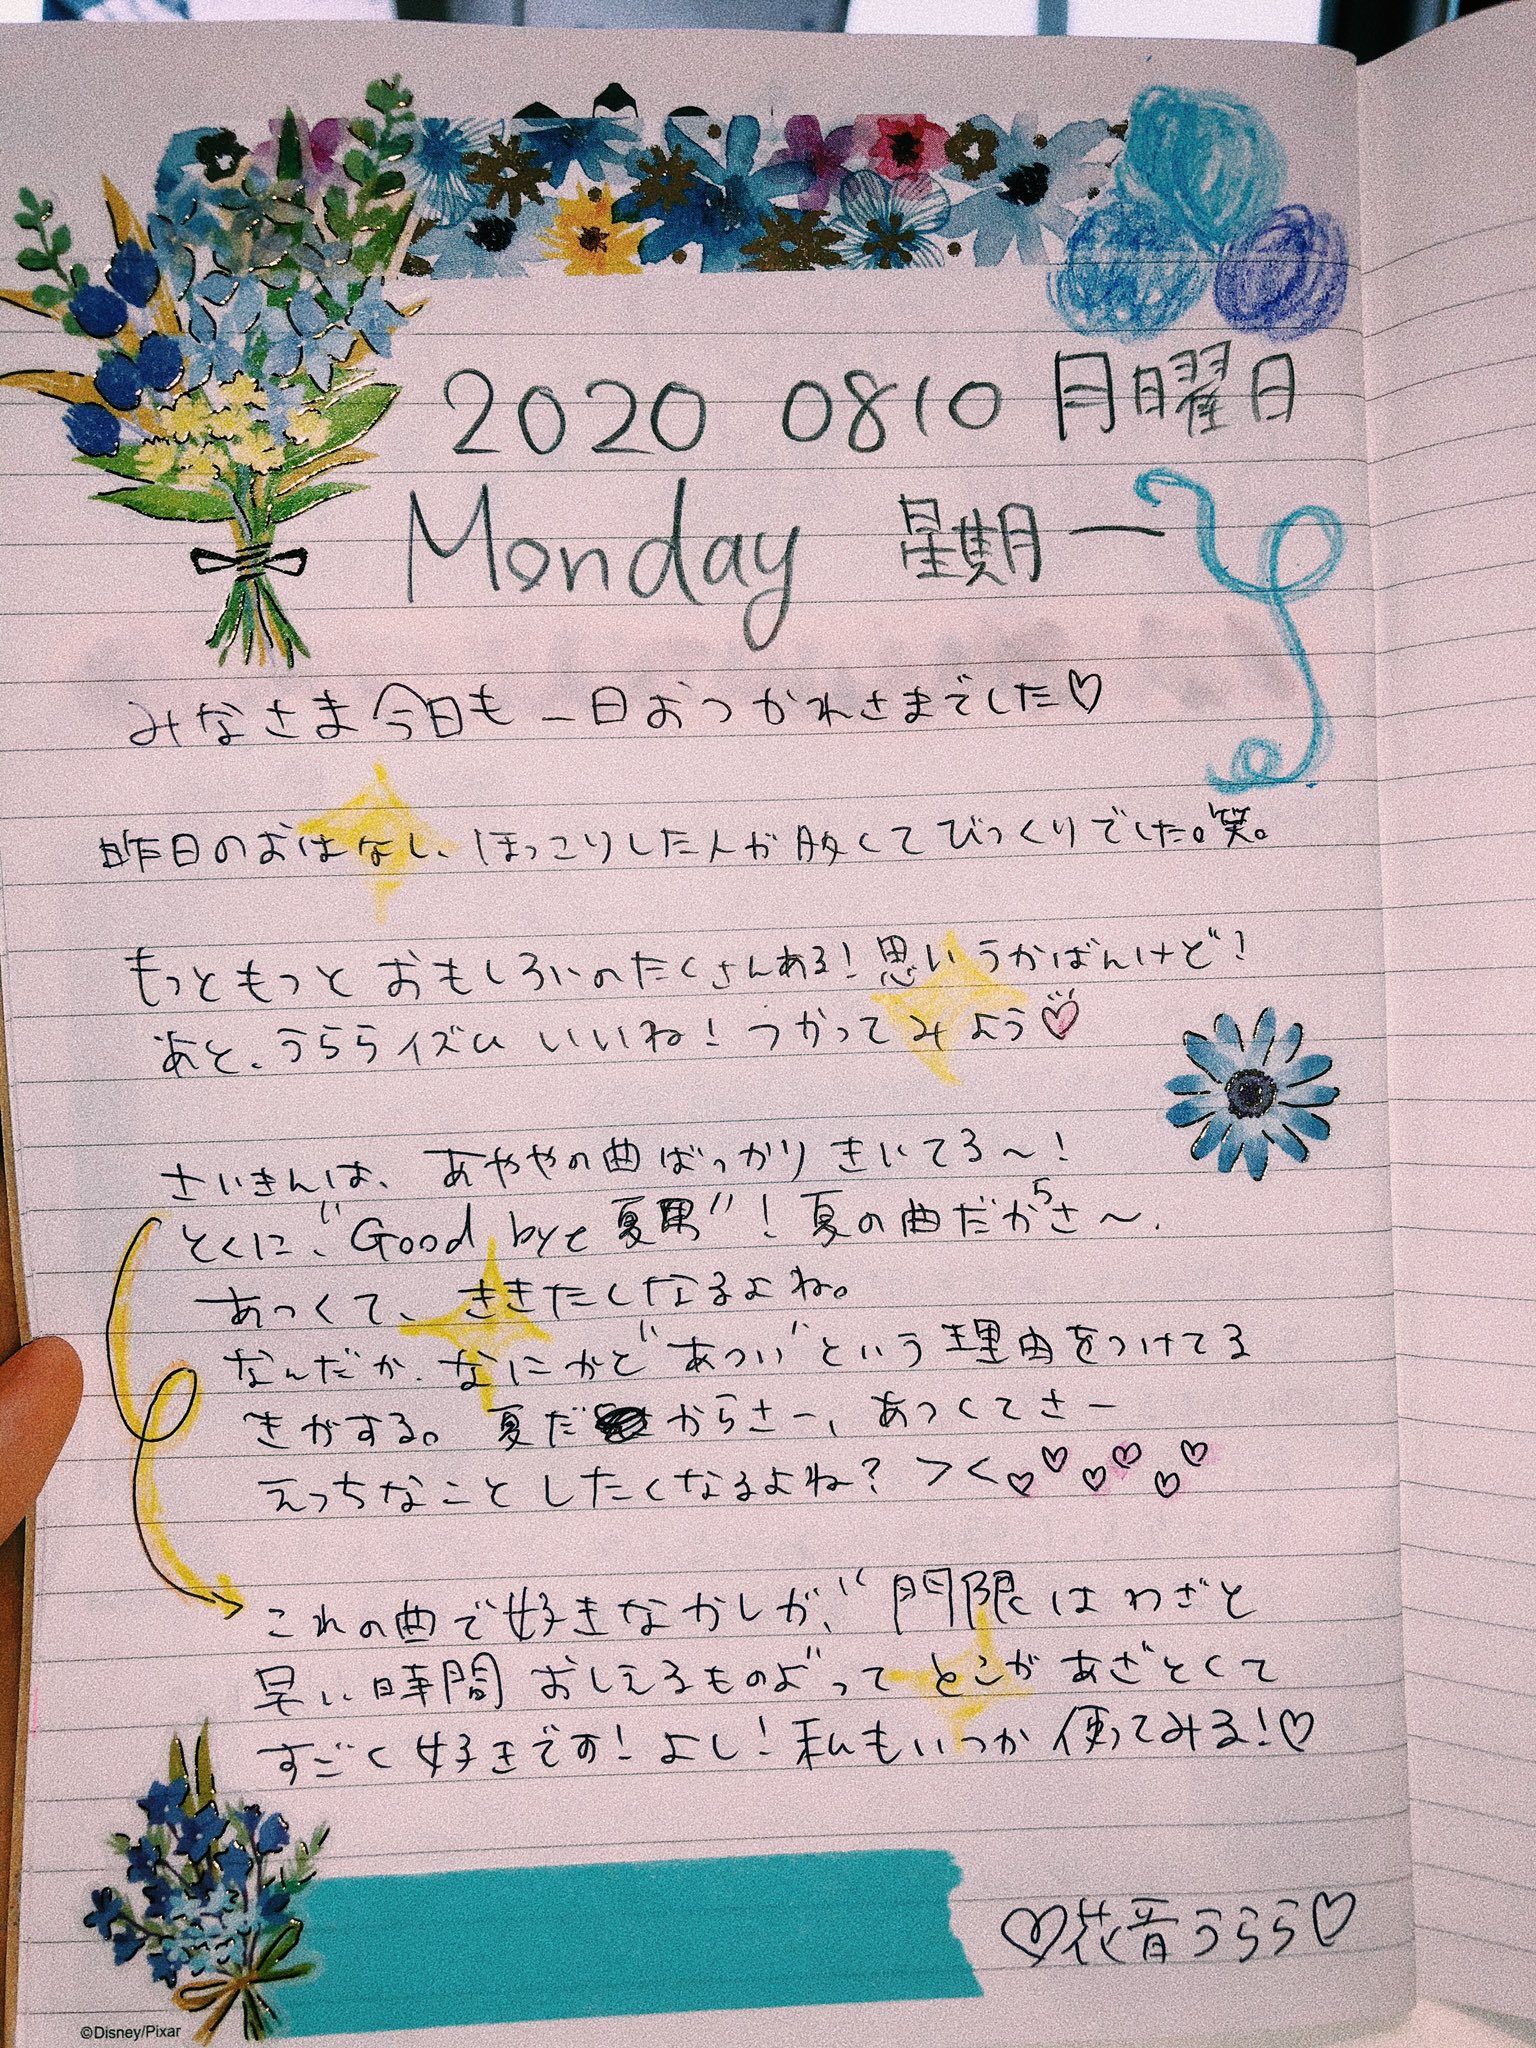 2020 0810 月曜日
Monday 星期一
みなさま今日も一日おつかれさまでした♡
昨日のおはなし、ほっこりした人が多くてびっくりでした。笑。
もっともっとおもしろいのたくさんある!思いうかばんけど!
あと、うららイズムいいね!つかってみよう♡
さいきんは、あややの曲ばっかりきいてる〜!
とくに、"Good bye 夏男"!夏の曲だからさ〜、
あつくて、ききたくなるよね。
なんだか、なにかと"あつい"という理由をつけてる
きがする。夏だからさー、あつくてさー
えっちなことしたくなるよね?＞＜♡♡♡♡♡♡
これの曲で好きなかしが、"門限はわざと
早い時間おしえるものよ"ってとこがあざとくて
すごく好きです!よし!私もいつか使ってみる!♡
♡花音うらら♡
©Disney/Pixar